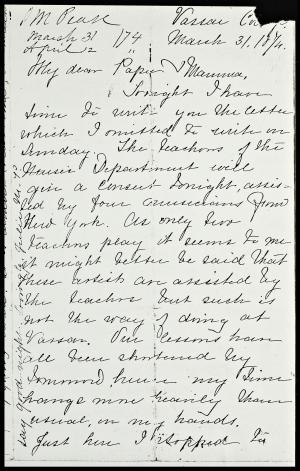 J M Pease
March 31 174
April 12 "
Vassar Co
March 31, 1874.
My dear Papa & Mamma,
Tonight I have
time to write you the letter
which I omitted to write on
Sunday. The teachers of the
Music Department will
give a consert tonight, assis-
ted by four musicians from
New York. As only two
teachers play it seems to me
it might better be said that
these artists are assisted by
the teachers but such is
not the way of doing at
Vassar. Our lessons have
all been shortened by
hence my time
hangs more heavily than
usual, on my hands.
Just here I stopped to
say good night